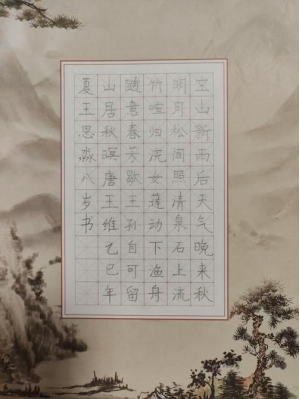 空山新雨后天气晚来秋
明月松间照清泉石上流
竹喧归浣女莲动下渔舟
随意春芳歇王孙自可留
山居秋暝唐王维乙巳年
夏王思淼八岁书